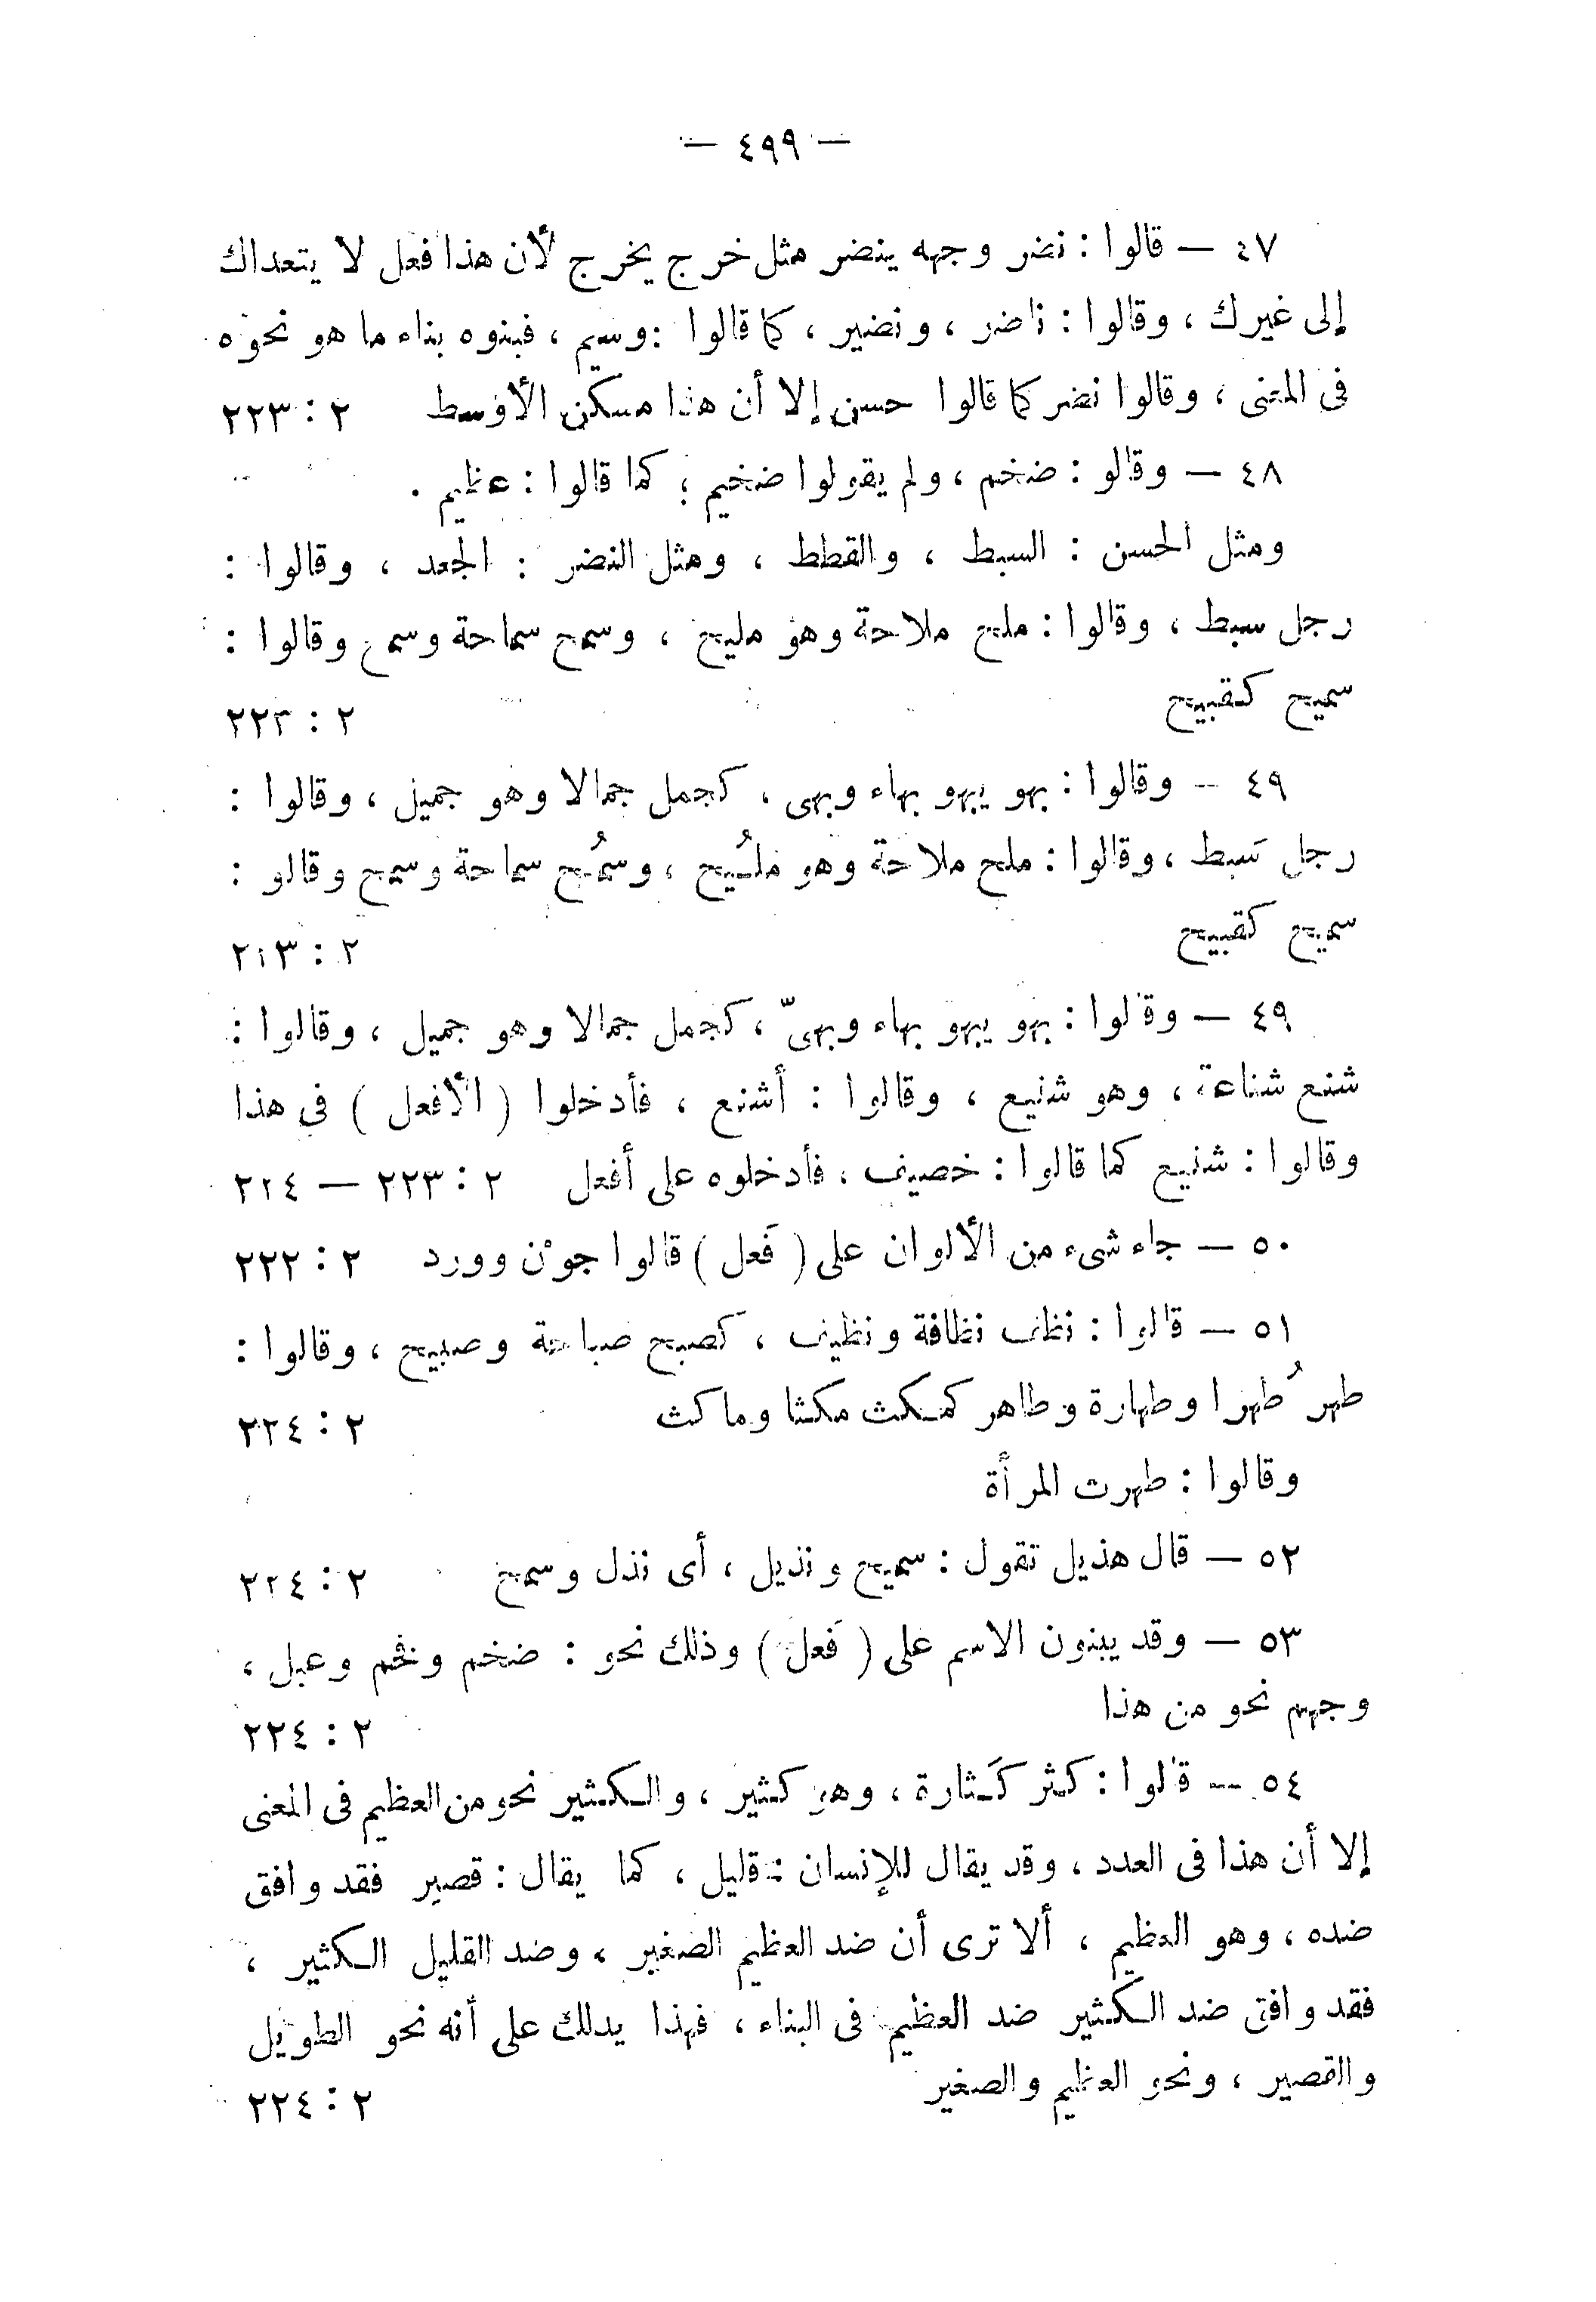 — ٤٩٩ —
٤٧ — قالوا : نضر وجهه ينضر مثل خرج يخرج لأن هذا فعل لا يتعداك
إلى غيرك ، وقالوا : ناضر ، ونضير ، كما قالوا : وسيم ، فبنوه بناء ما هو نحوه
فى المعنى ، وقالوا نضر كما قالوا حسن إلا أن هذا مسكن الأوسط ٢ : ٢٢٣
٤٨ — وقالو : ضخم ، ولم يقولوا ضخيم ؛ كما قالوا : عظيم .
ومثل الحسن : السبط ، والقطط ، ومثل النضر : الجعد ، وقالوا :
رجل سبط ، وقالوا : ملح ملاحة وهو مليح ، وسمح سماحة وسمح وقالوا :
سميح كقبيح ٢ : ٢٢٣
٤٩ — وقالوا : بهو يبهو بهاء وبهى ، كجمل جمالا وهو جميل ، وقالوا :
رجل سَبط ، وقالوا : ملح ملاحة وهو ملُيح ، وسمُح سماحة وسمح وقالو :
سميح كقبيح ٢ : ٢١٣
٤٩ — وقالوا : بهو يبهو بهاء وبهىّ ، كجمل جمالا وهو جميل ، وقالوا :
شنع شناعة ، وهو شنيع ، وقالوا : أشنع ، فأدخلوا ( الأفعل ) فى هذا
وقالوا : شنيع كما قالوا : خصيف ، فأدخلوه على أفعل ٢ : ٢٢٣ — ٢٢٤
٥٠ — جاء شىء من الألوان على ( فَعل ) قالوا جوْن وورد ٢ : ٢٢٢
٥١ — قالوا : نظف نظافة ونظيف ، كصبح صباحة وصبيح ، وقالوا :
طهر طُهرا وطهارة وطاهر كمكث مكثا وماكث ٢ : ٢٢٤
وقالوا : طهرت المرأة
٥٢ — قال هذيل تقول : سميح ونذيل ، أى نذل وسمح ٢ : ٢٢٤
٥٣ — وقد يبنون الاسم على ( فَعل ) وذلك نحو : ضخم وفخم وعبل ،
وجهم نحو من هذا ٢ : ٢٢٤
٥٤ — قالوا : كثر كَثارة ، وهو كثير ، والكثير نحو من العظيم فى المعنى
إلا أن هذا فى العدد ، وقد يقال للإنسان : قليل ، كما يقال : قصير فقد وافق
ضده ، وهو العظيم ، ألا ترى أن ضد العظيم الصغير ، وضد القليل الكثير ،
فقد وافق ضد الكثير ضد العظيم فى البناء ، فهذا يدلك على أنه نحو الطويل
والقصير ، ونحو العظيم والصغير ٢ : ٢٢٤